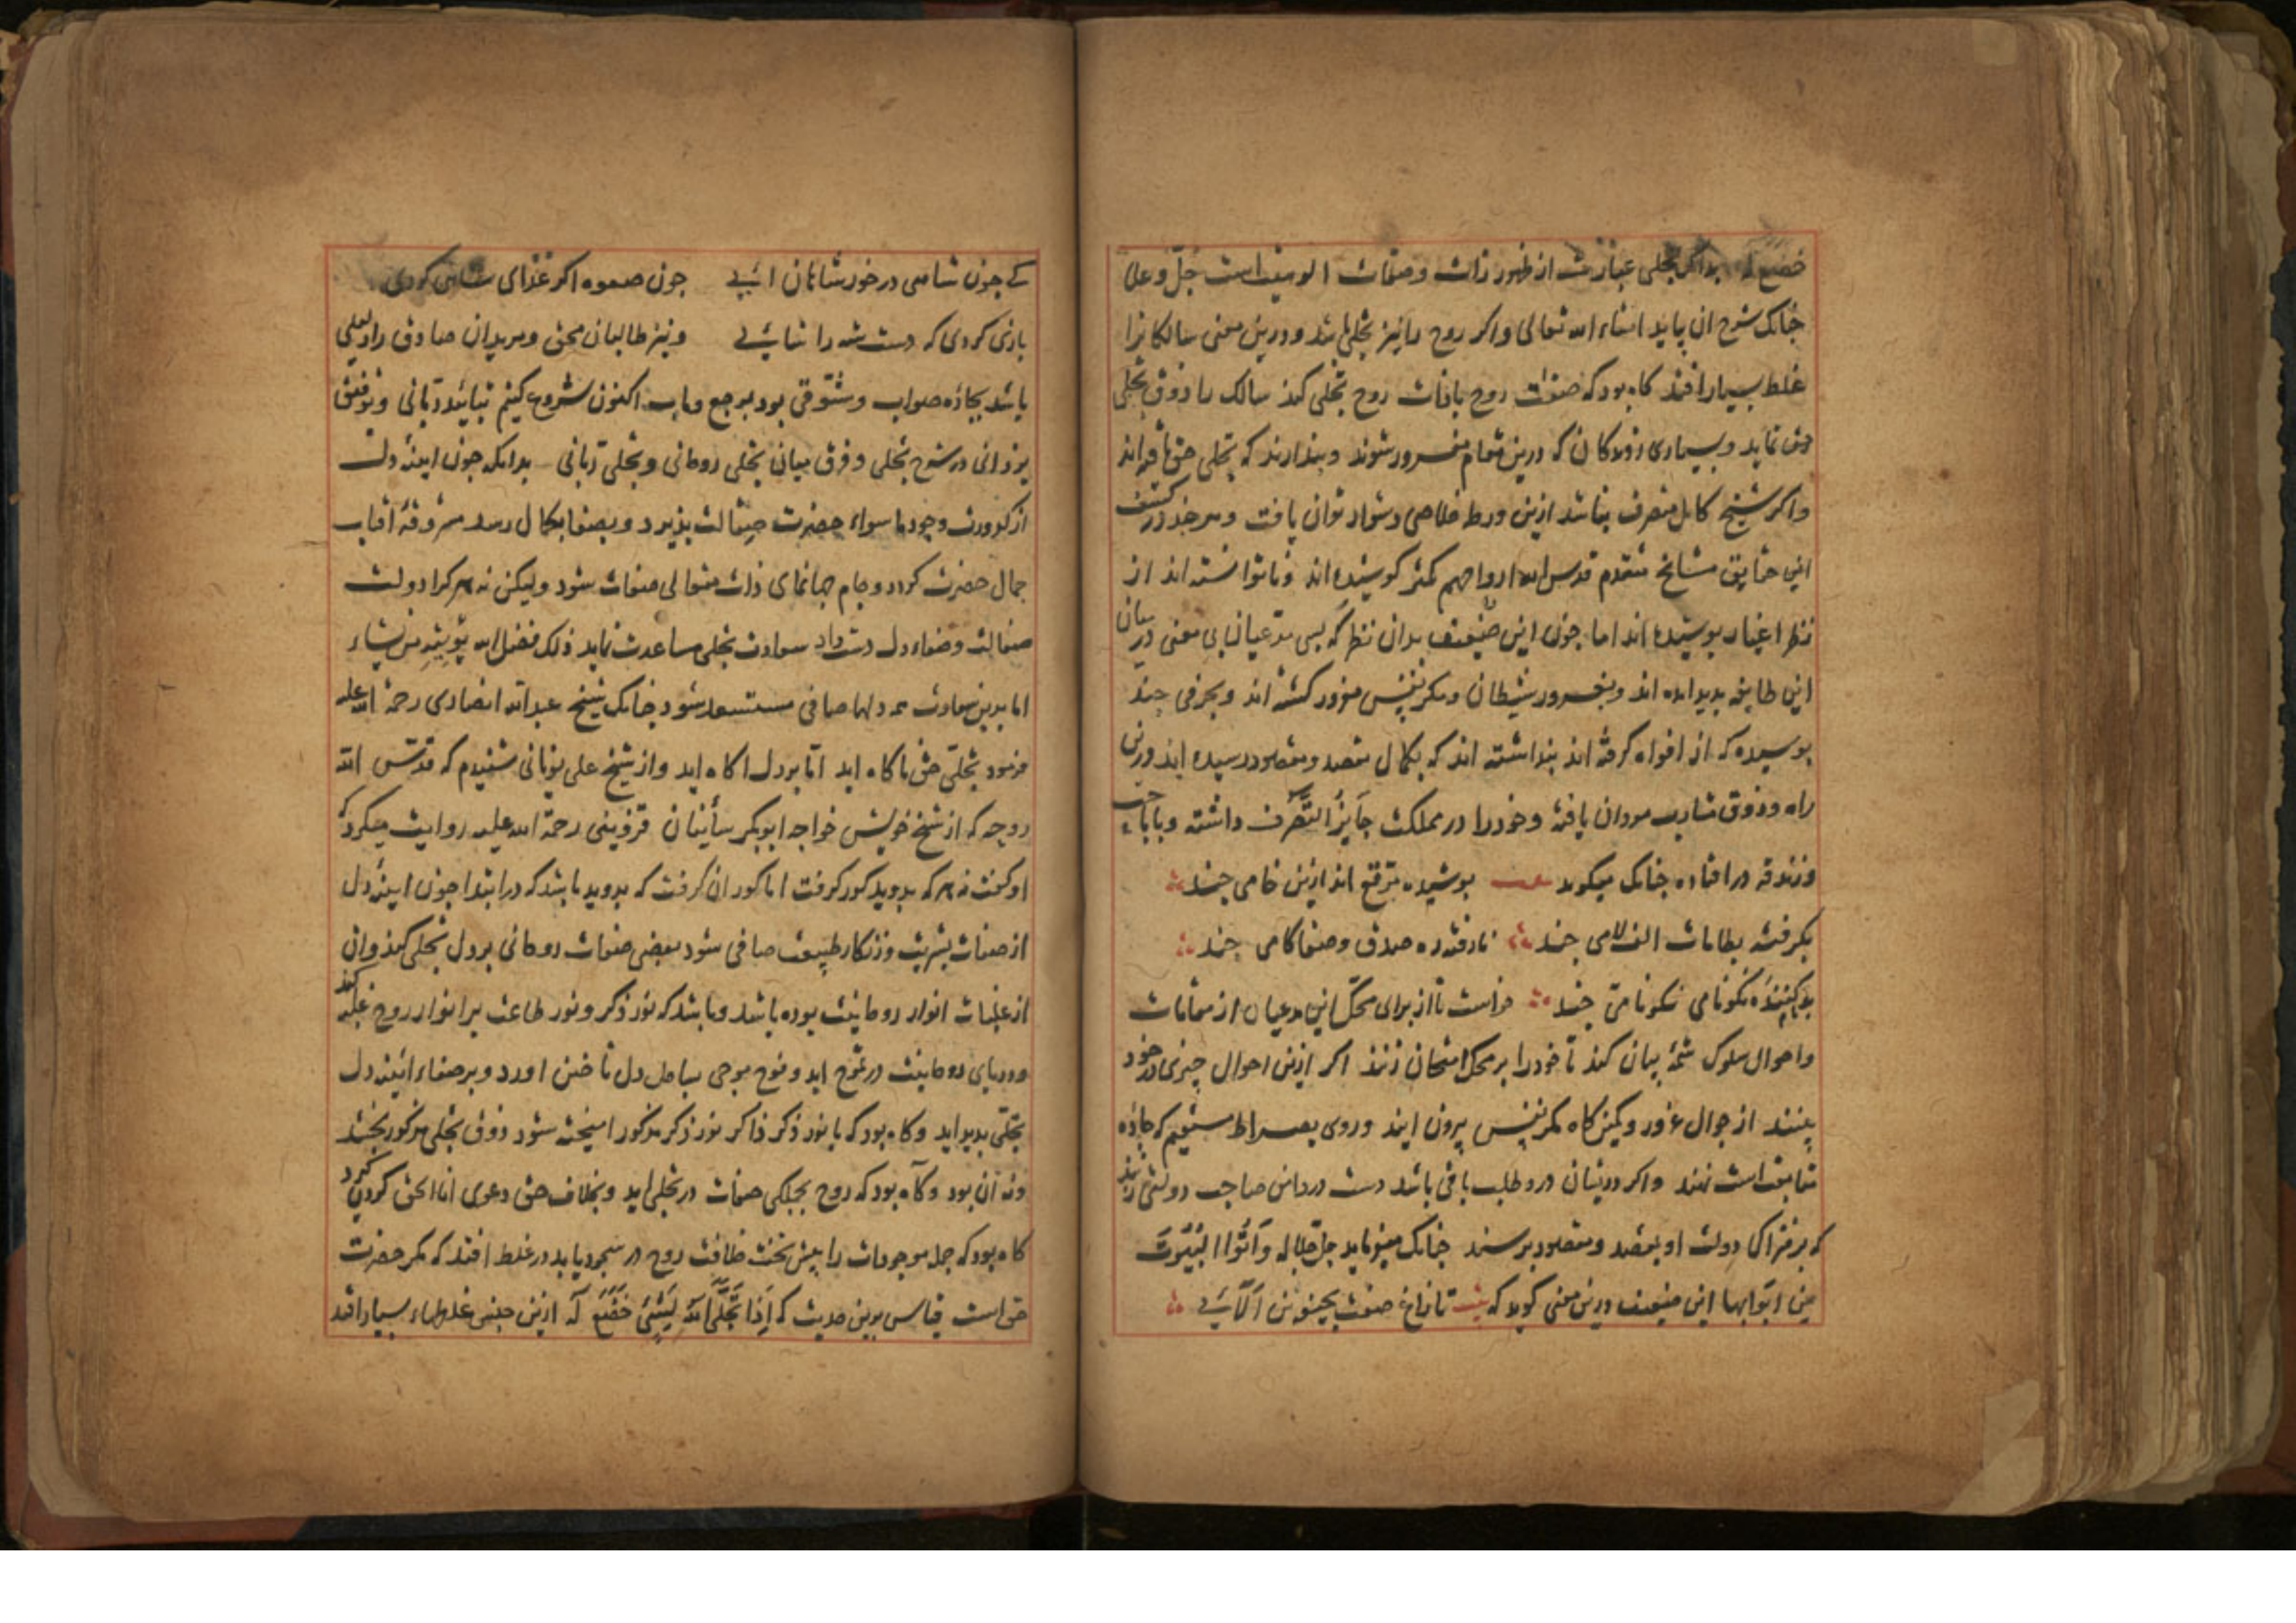 خضع له بدانک تجلی عبارتست از ظهور ذات و صفات الوهیت است جلّ و علا
چنانک شرح ان بیاید انشاء الله تعالی واکر روح را نیز تجلی باشد و درین معنی سالکانرا
غلط بسیار افتد کاه بود که صفات روح با ذات روح تجلی کند سالک را ذوق تجلی
حق نماید و بسیاری روندکان که درین مقام مغرور شوند و پندارند که تجلی حق یافته اند
واکر شیخ کامل متصرف نباشد ازین ورطه خلاصی دشوار توان یافت و هرچند در کشف
این حقایق مشایخ متقدم قدس الله ارواحهم کمتر کوشیده اند و تا توانسته اند از
نظر اغیار پوشیده اند اما چون این ضعیف بدان نظر که بسی مدعیان بی معنی در میان
این طایفه پدید امده اند و بغرور شیطان و مکر نفس مغرور کشته اند و بحرفی چند
پوسیده که از افواه کرفته اند پنداشته اند که بکمال مقصد و مقصود رسیده اند و ازین
راه و ذوق مشارب مردان یافته و خود را در مملکت جایز التصرف داشته و باباحت
و زندقه در افتاده چنانک میکوید بیت پوشیده مرقع اند ازین خامی چند
بکرفته بطامات الف لامی چند نارفته ره صدق و صفا کامی چند
بدکننده نکونامی نکونامی چند خواست تا از برای محک این مدعیان از مقامات
واحوال سلوک شمه بیان کند تا خود را بر محک امتحان زنند اکر ازین احوال چیزی در خود
بینند از جوال غرور و کمین کاه مکر نفس بیرون ایند و روی بصراط مستقیم که جاده
متابعت است نهند واکر درایشان درد طلب باقی باشد دست در دامن صاحب دولتی زنند
که بر فتراک دولت او بمقصد و مقصود برسند چنانک میفرماید جل جلاله وَأتُوا البُیُوتَ
مِن ابوابها این ضعیف درین معنی کوید که بیت تا زاغ صفت بجیفه تن الایی
کی چون شاهی در خور شاهان ایی چون صعوه اکر غذای شاهی کردی
بازی کردی که دست شه را شایی و نیز طالبان محق و مریدان صادق را دلیلی
باشد بجاده صواب و مشوقی بود بمرجع و ماب اکنون شروع کنیم بتایید ربانی و توفیق
یزدانی در شرح تجلی و فرق میان تجلی روحانی و تجلی ربانی بدانکه چون اینه دلت
از کدورت وجود ما سواء حضرت صقالت پذیرد و بصفا بکمال رسد مشروقه افتاب
جمال حضرت کردد و جام جهانمای ذات متعالی صفات شود ولیکن نه هرکرا دولت
صقالت و صفاء دل دست داد سعادت تجلی مساعدت نماید ذلک فضل الله یؤتیه من یشاء
اما بدین سعادت همه دلهاء صافی مستسعد شود چنانک شیخ عبدالله انصاری رحمة الله علیه
فرمود تجلی حق ناکاه اید امّا بر دل اکاه اید واز شیخ علی بونانی شنیدم که قدس الله
روحه که از شیخ خویش خواجه ابوبکر سأنیان قزوینی رحمة الله علیه روایت میکرد که
او کفت نه هر که بدوید کور کرفت اما کور ان کرفت که بدوید باشد که در ابتدا چون اینه دل
از صفات بشریت و زنکار طبیعت صافی شود بعضی صفات روحانی بر دل تجلی کند وان
از غلبات انوار روحانیت بوده باشد و باشد که نور ذکر و نور طاعت بر انوار روح غلبه کند
و دریای روحانیت در تموج اید و فوج موجی بساحل دل تاختن اورد و بر صفاء ائینه دل
تجلّی پدید اید و کاه بود که با نور ذکر ذاکر نور ذکر مذکور امیخته شود ذوق تجلی مذکور بخشد
و نه آن بود و کآه بود که روح بجملکی صفات در تجلی اید و بخلاف حق دعوی انا الحق کردن کیرد
کاه بود که جمله موجودات را پیش تخت خلافت روح در سجود یابد در غلط افتد که مکر حضرت
حق است قیاس برین حدیث که اِذا تَجَلَّی اللهُ لِشَیْئٍ خَضَعَ لَه ازین جنس غلطهاء بسیار افتد